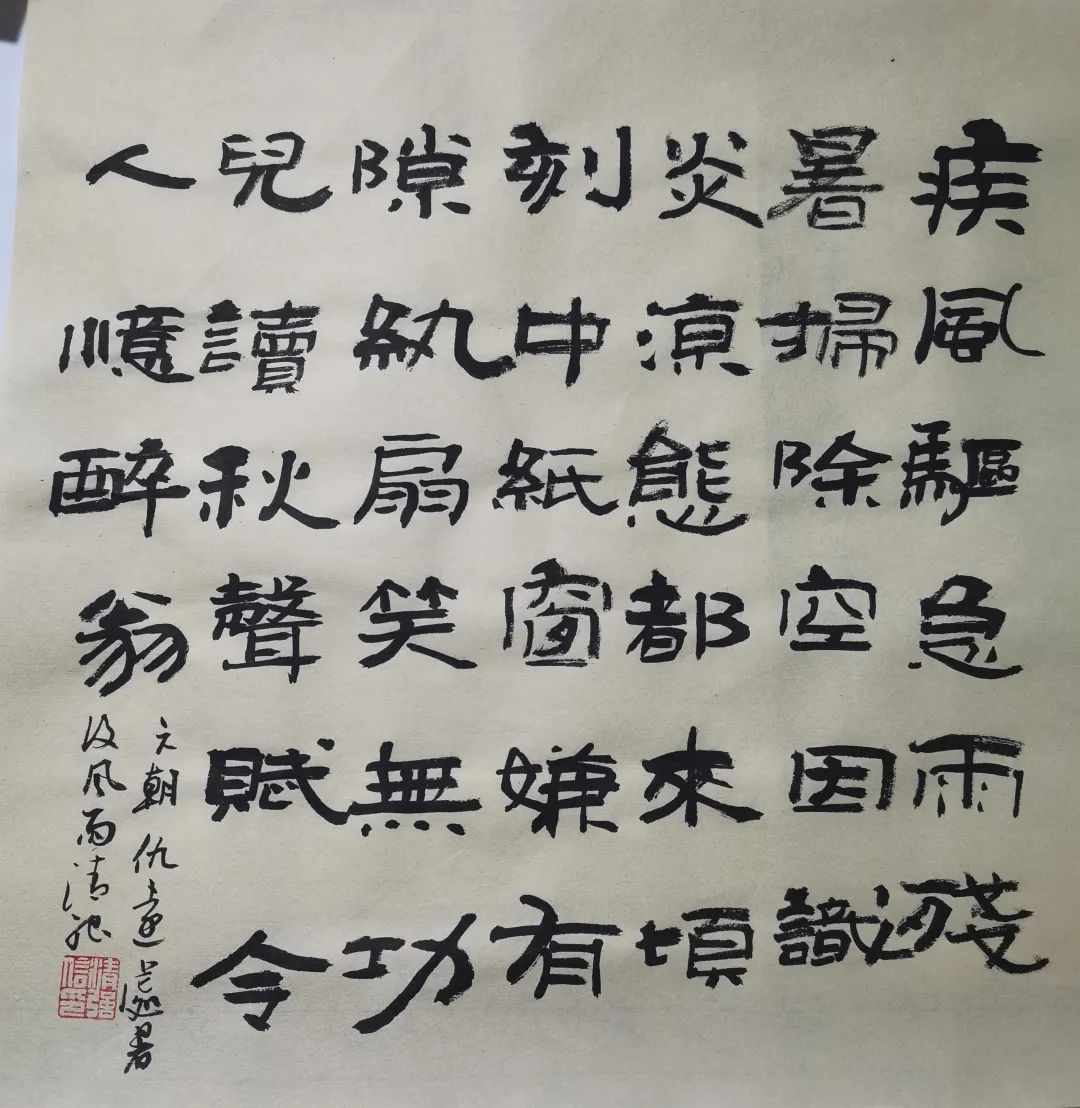 疾風驅急雨殘
暑掃除空因識
炎涼態都來頃
刻中紙窗嫌有
隙紈扇笑無功
兒讀秋聲賦令
人憶醉翁
元朝仇遠處暑
後風雨清強